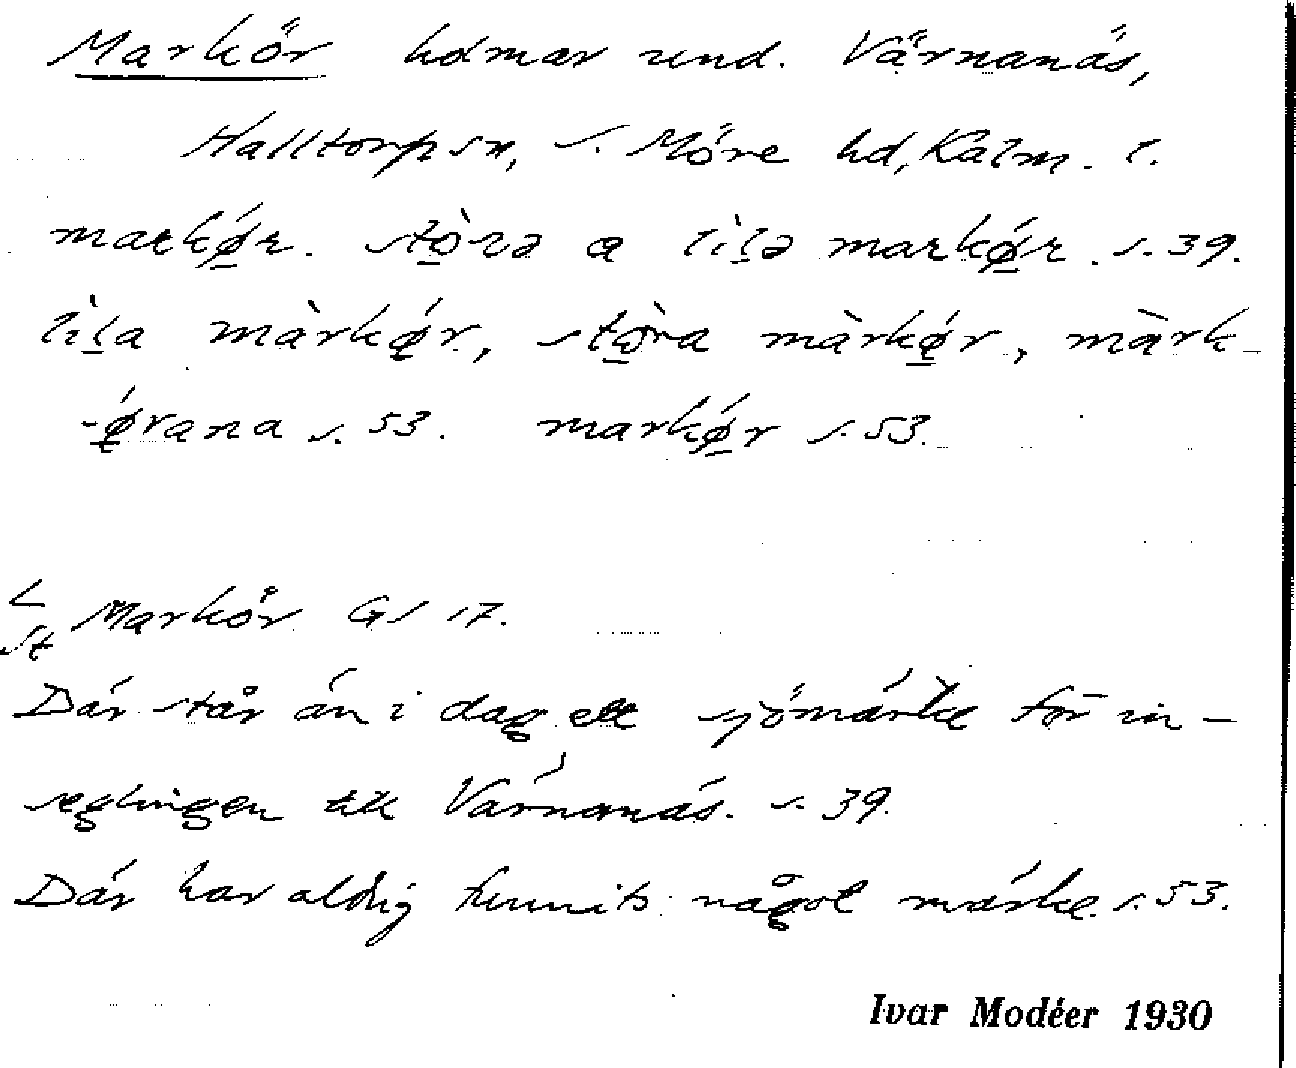 Markör holmar und. Värnanäs,
Halltorp sn, S. Möre hd, Kalm. l.
markǿ̱r. stò̱rə a lìḻə markǿ̱r. s. 39.
lìḻa màrkǿ̱r, stò̱ra màrkǿ̱r, màrk-
-ǿ̱rana s. 53. markǿ̱r s. 53.
L
St Markör GS 17.
Där står än i dag ett sjömärke för in-
seglingen till Värnanäs. s. 39.
Där har aldrig funnits något märke. s. 53.
Ivar Modéer 1930